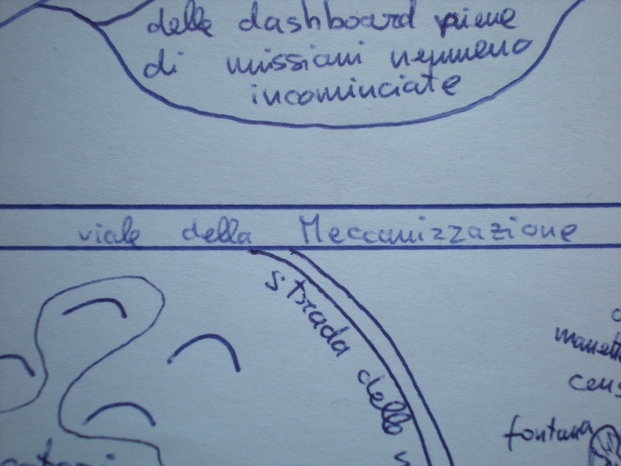 delle dashboard piene
di missioni nemmeno
incominciate
viale della Meccanizzazione
strada delle
fontana